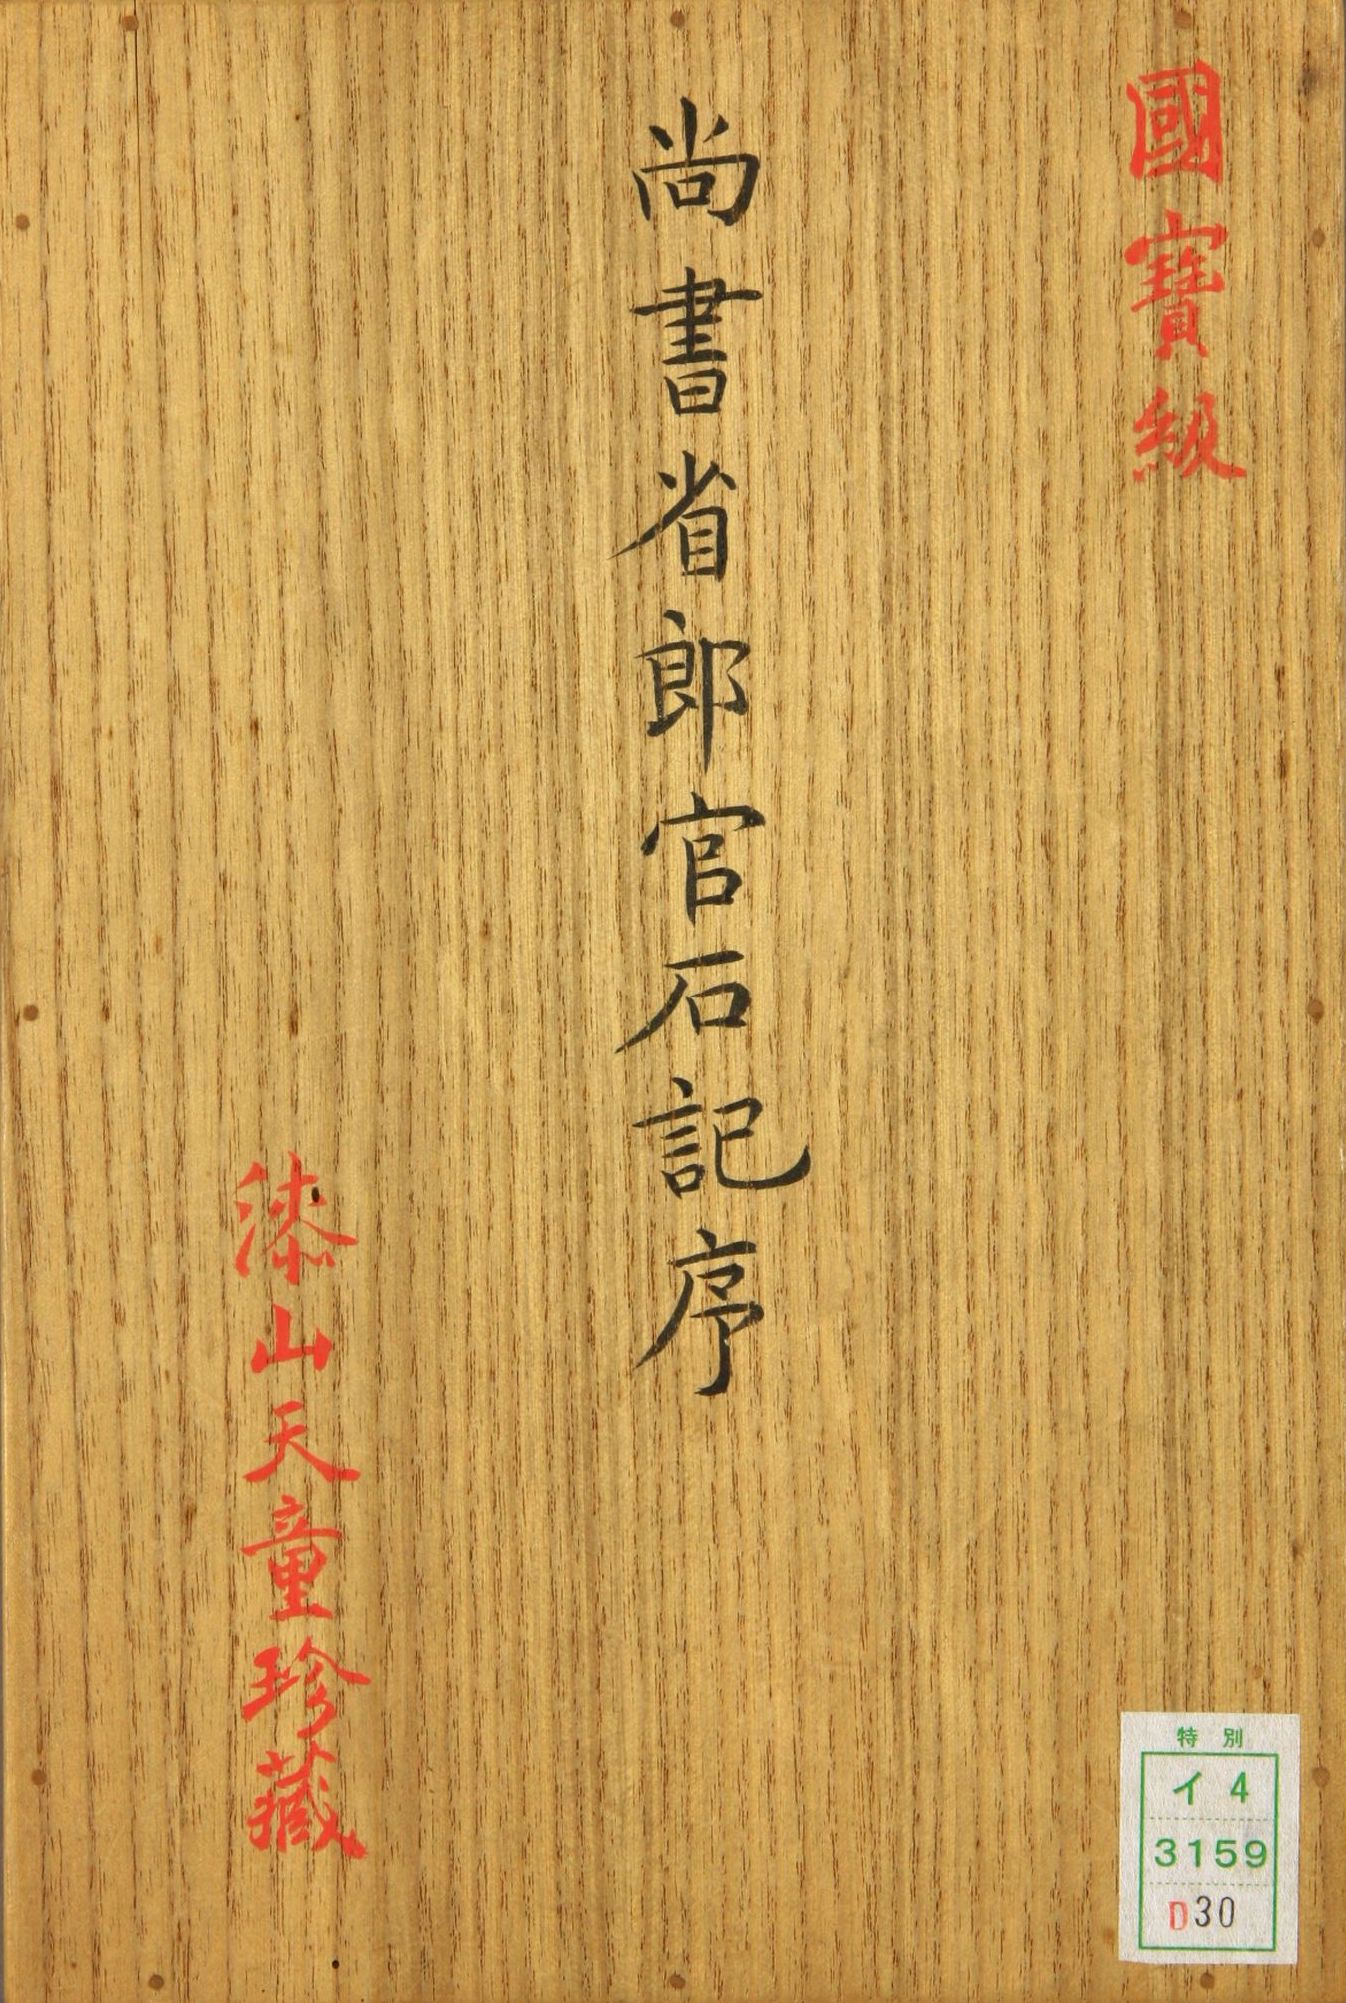 國寶級
尚書省郎官石記序
漆山天童珍藏
特別
イ 4
3159
D30